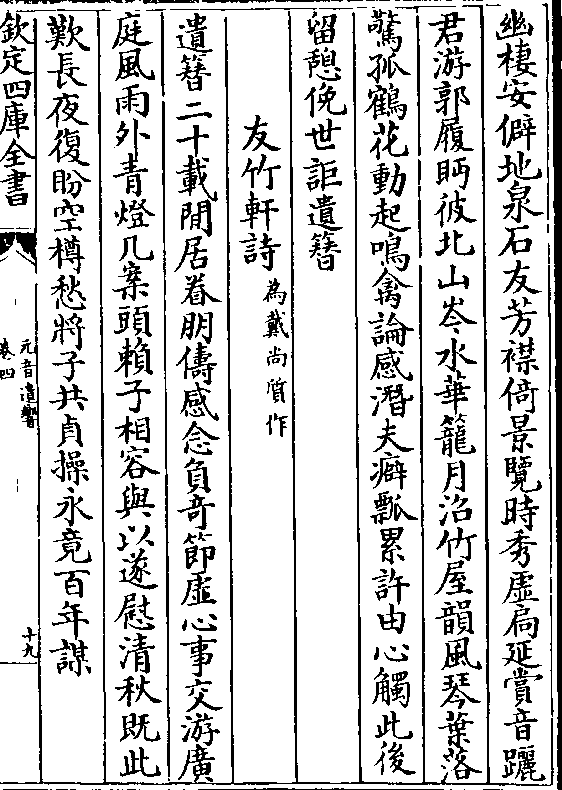 幽棲安僻地泉石友芳襟倚景覽時秀虛扄延賞音躧
君游郭履眄彼北山岑水華籠月沼竹屋韻風琴葉落
驚孤鶴花動起鳴禽論感潛夫癖瓢累許由心觸此後
留憩俛世詎遺簮
友竹軒詩為戴尚質作
遺簮二十載閒居眷朋儔感念負奇節虛心事交游廣
庭風雨外青燈几案頭賴子相容與以遂慰清秋既此
歎長夜復盼空樽愁將子共貞操永竟百年謀
欽定四庫全書
元音遺響
卷四
十九